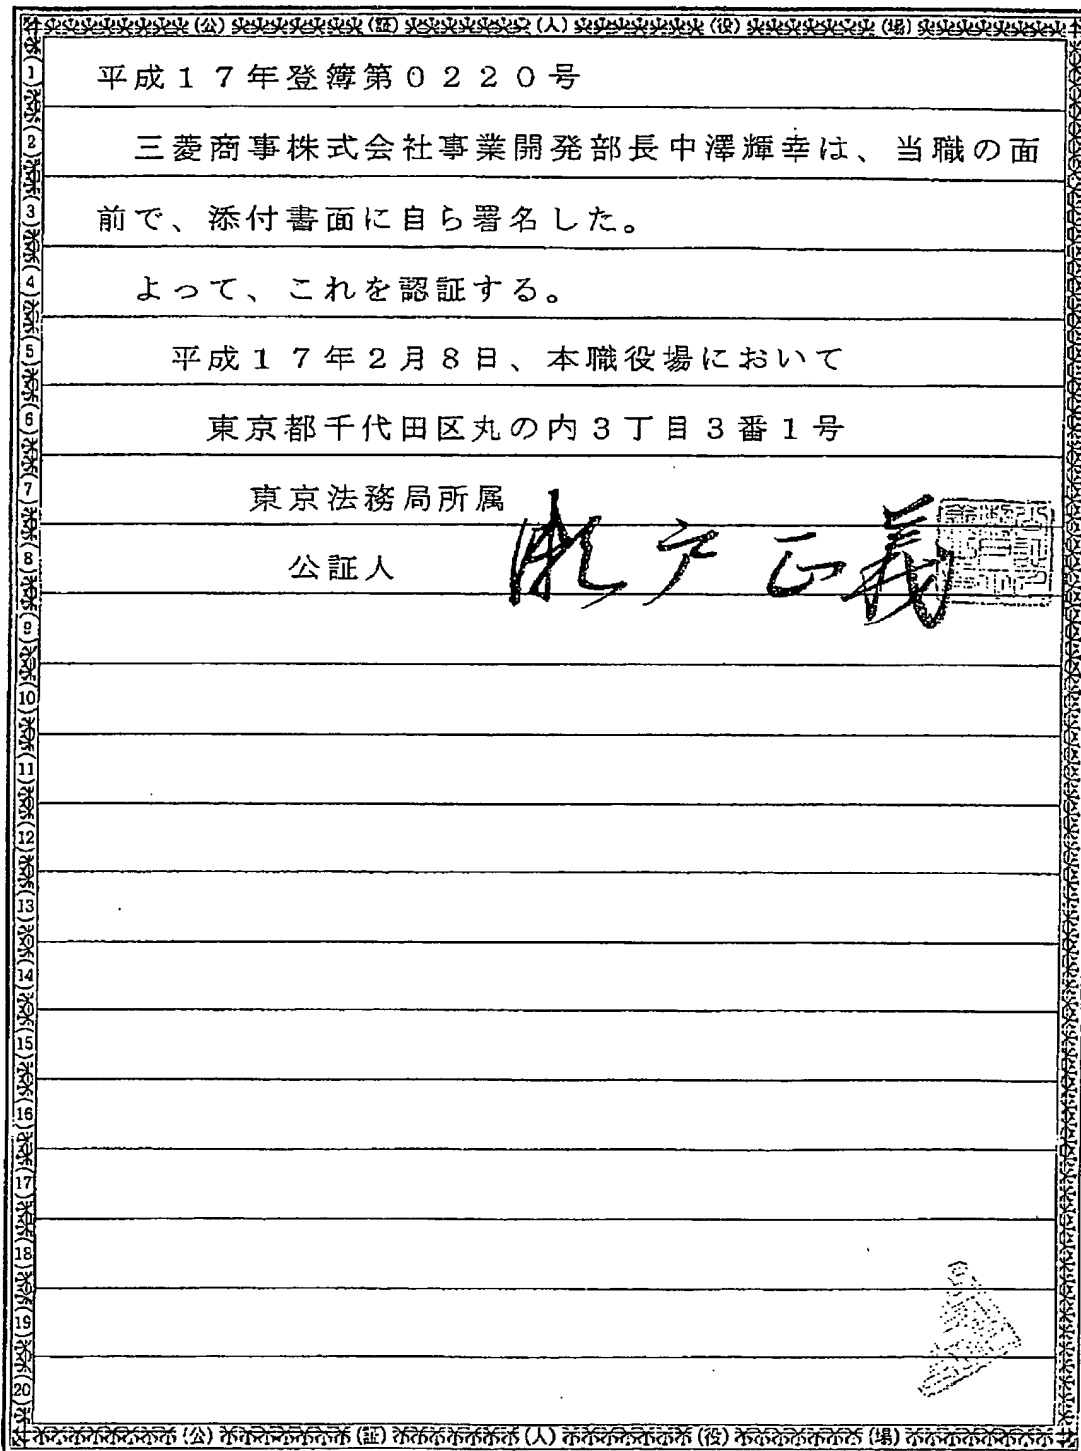 (公) (証) (人) (役) (場)
平成１７年登簿第０２２０号
三菱商事株式会社事業開発部長中澤輝幸は、当職の面
前で、添付書面に自ら署名した。
よって、これを認証する。
平成１７年２月８日、本職役場において
東京都千代田区丸の内３丁目３番１号
東京法務局所属
公証人 瀬戸正義
(1)
(2)
(3)
(4)
(5)
(6)
(7)
(8)
(9)
(10)
(11)
(12)
(13)
(14)
(15)
(16)
(17)
(18)
(19)
(20)
(公) (証) (人) (役) (場)